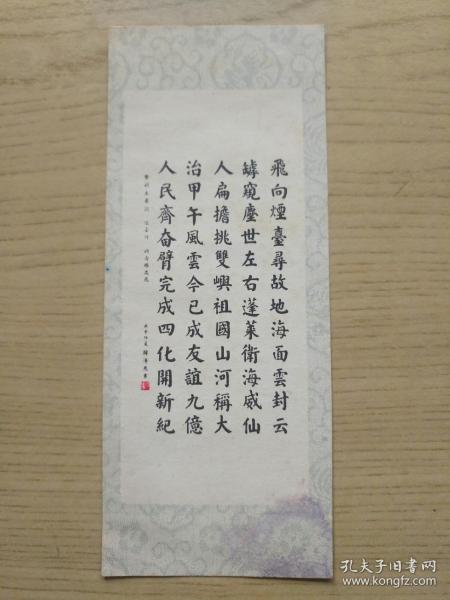 飛向煙臺尋故地海面雲封云
罅窺塵世左右蓬萊衛海威仙
人扁擔挑雙嶼祖國山河稱大
治甲午風雲今已成友誼九億
人民齊奋臂完成四化開新紀
孔夫子旧书网
www.kongfz.com